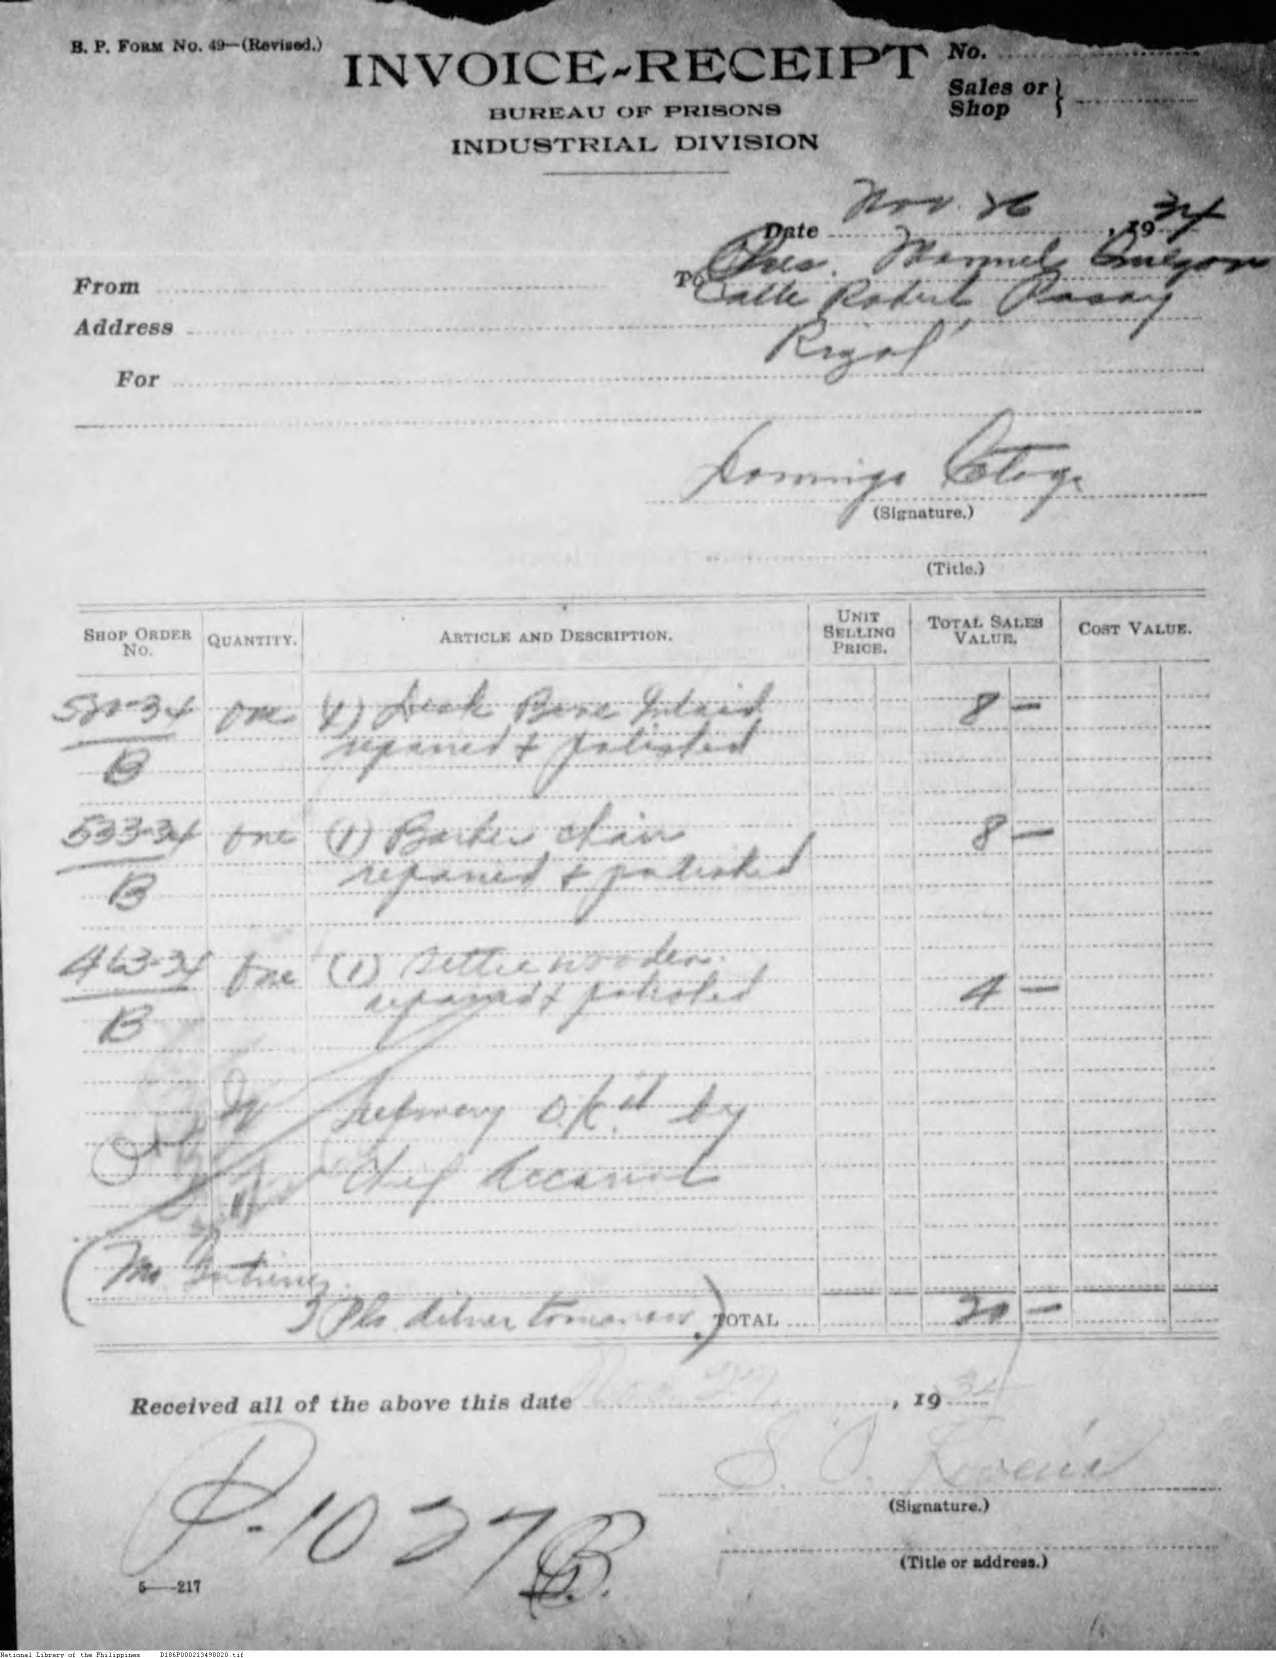 B. P. FORM NO. 49—(Revised.)
INVOICE-RECEIPT
BUREAU OF PRISONS
INDUSTRIAL DIVISION
No.
Sales or Shop
Date Nov. 26, 1934
To Pres. Manuel Quezon
From
Calle Robert, Pasay
Address
Rizal
For
Domingo
(Signature.)
(Title.)
SHOP ORDER NO. QUANTITY. ARTICLE AND DESCRIPTION. UNIT SELLING PRICE. TOTAL SALES VALUE. COST VALUE.
520-34 One (1) Desk Inlaid 8 —
repaired & polished
B
533-34 One (1) chair 8 —
repaired & polished
B
463-34 One (1) Settee wooden
repaired & polished 4 —
B
O.K'd by
Chief
(Mr.
Pls. deliver tomorrow.) TOTAL 20 —
Received all of the above this date Nov 27, 1934
S.
(Signature.)
P-1027
(Title or address.)
5—217
National Library of the Philippines D186P000213498020.tif